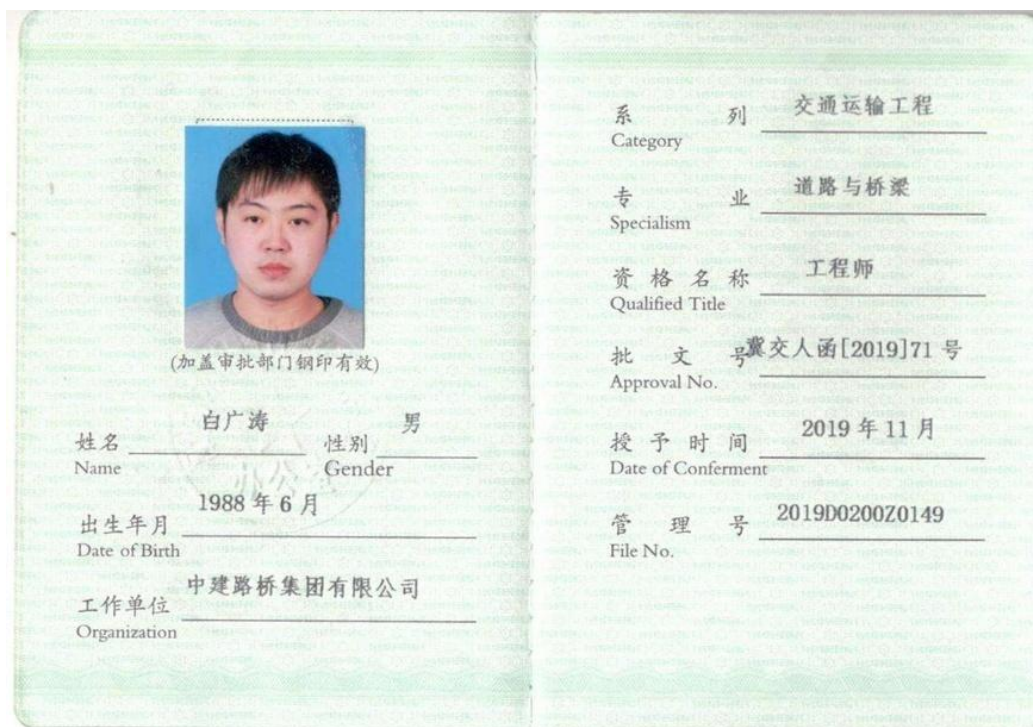 (加盖审批部门钢印有效)
姓名 白广涛 性别 男
Name Gender
出生年月 1988年6月
Date of Birth
工作单位 中建路桥集团有限公司
Organization
系列 交通运输工程
Category
专业 道路与桥梁
Specialism
资格名称 工程师
Qualified Title
批文号 冀交人函[2019]71号
Approval No.
授予时间 2019年11月
Date of Conferment
管理号 2019D0200Z0149
File No.